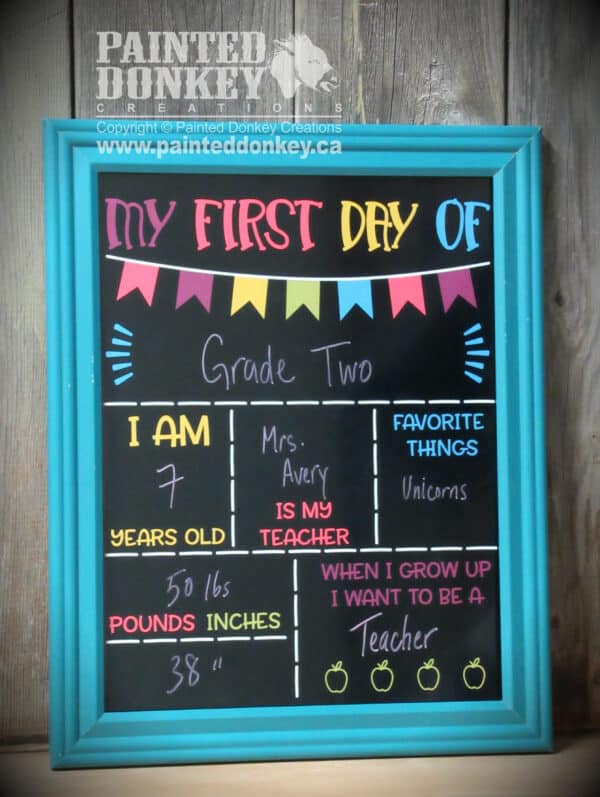 PAINTED
DONKEY
CREATIONS
Copyright © Painted Donkey Creations
www.painteddonkey.ca
MY FIRST DAY OF
Grade Two
I AM
7
YEARS OLD
Mrs.
Avery
IS MY
TEACHER
FAVORITE
THINGS
Unicorns
50 lbs
POUNDS INCHES
38"
WHEN I GROW UP
I WANT TO BE A
Teacher